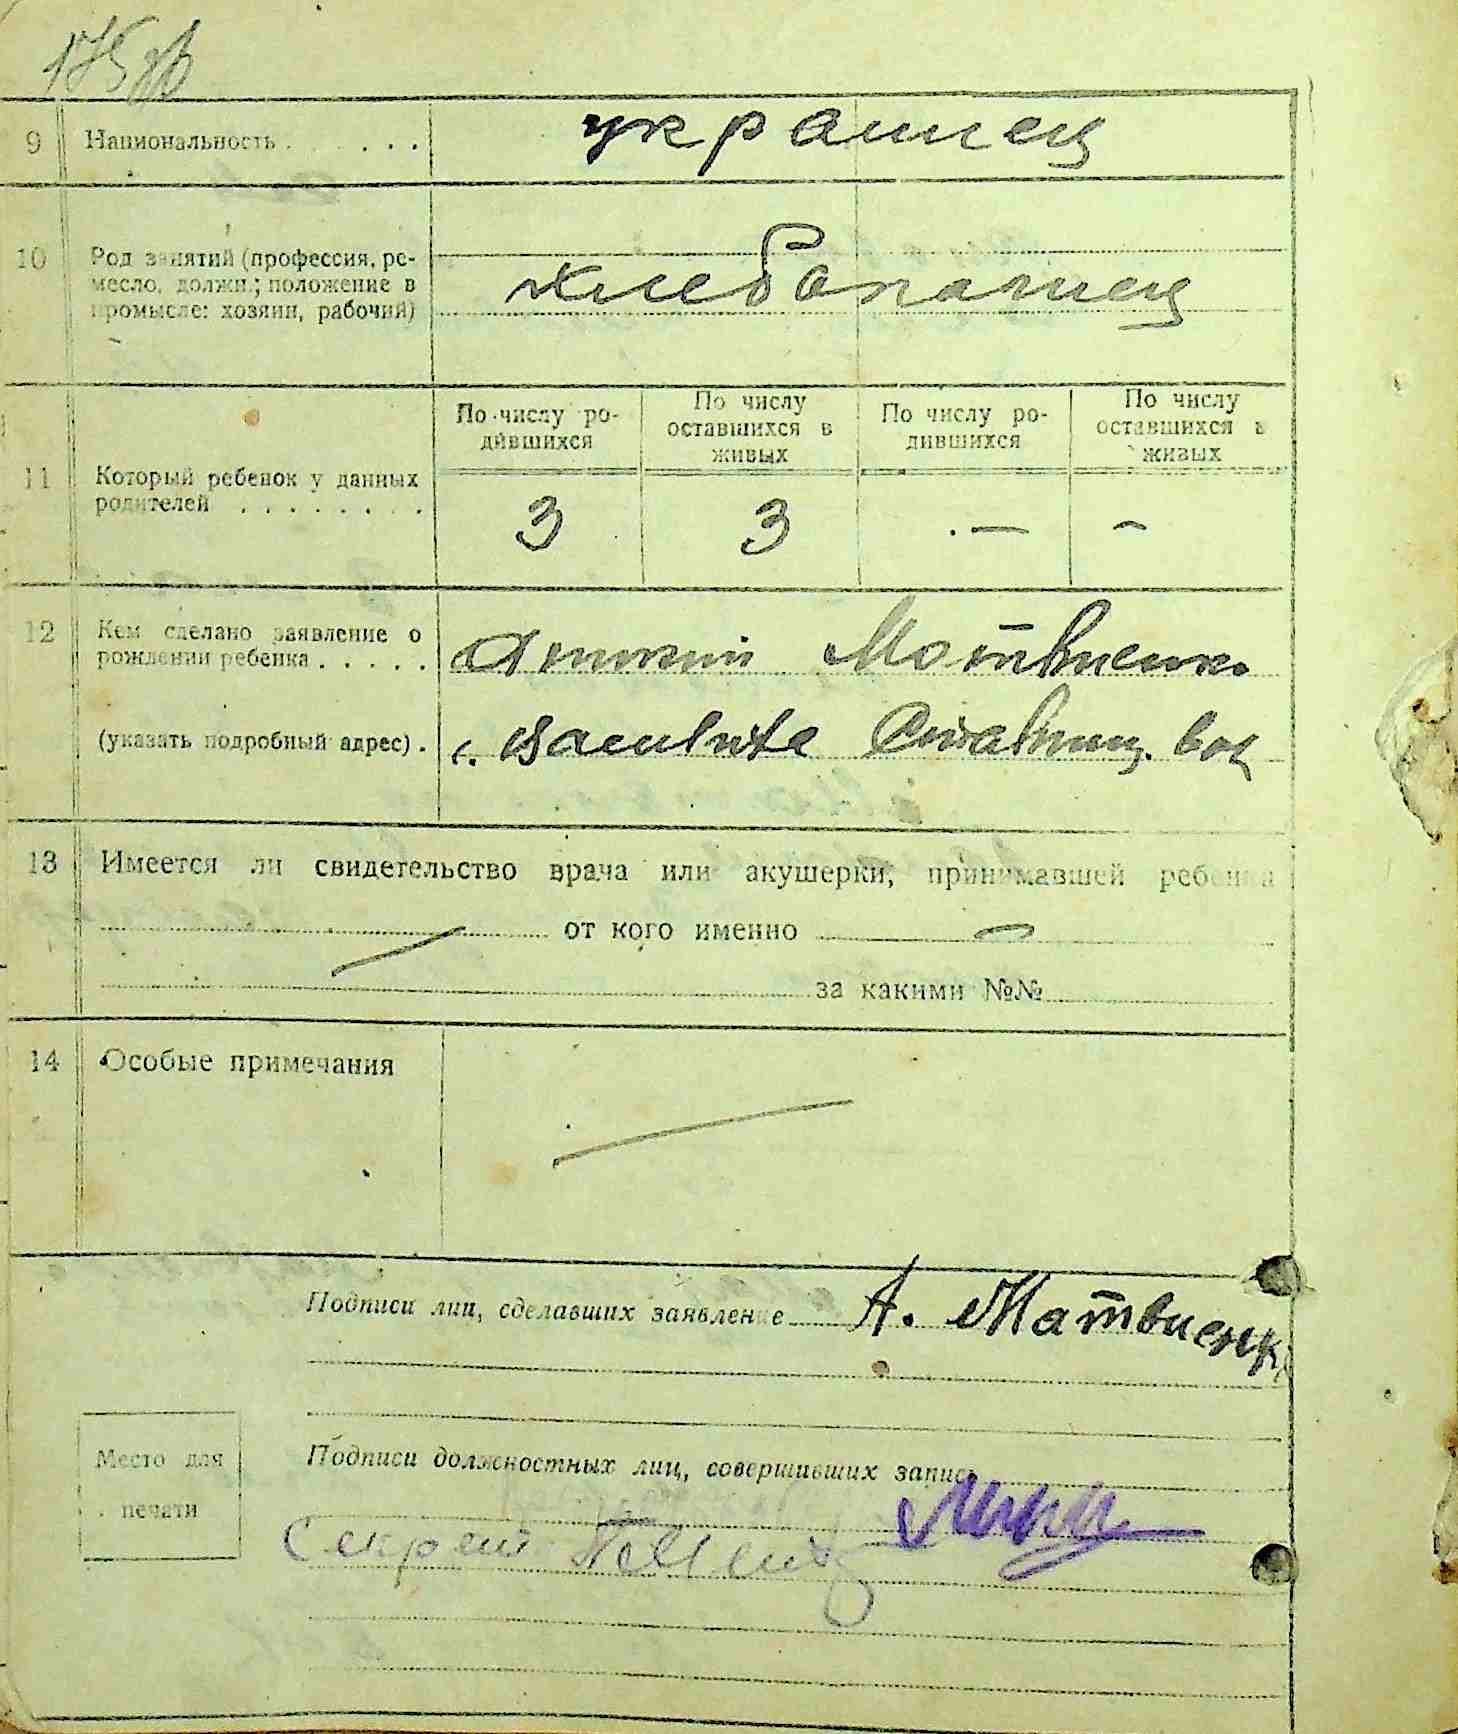 175 об
9 Национальность . . . . . украинец
10 Род занятий (профессия, ре-
месло, должн.; положение в
промысле: хозяин, рабочий)
хлебопашец
По числу ро-
дившихся
По числу
оставшихся в
живых
По числу ро-
дившихся
По числу
оставшихся в
живых
11 Который ребенок у данных
родителей . . . . . . . .
3 3 — —
12 Кем сделано заявление о
рождении ребенка . . . . .
Матвиенко
(указать подробный адрес) .
с.
13 Имеется ли свидетельство врача или акушерки, принимавшей ребенка
— от кого именно —
за какими №№
14 Особые примечания —
Подписи лиц, сделавших заявление А. Матвиенк
Подписи должностных лиц, совершивших запись
Место для
печати
Секрет